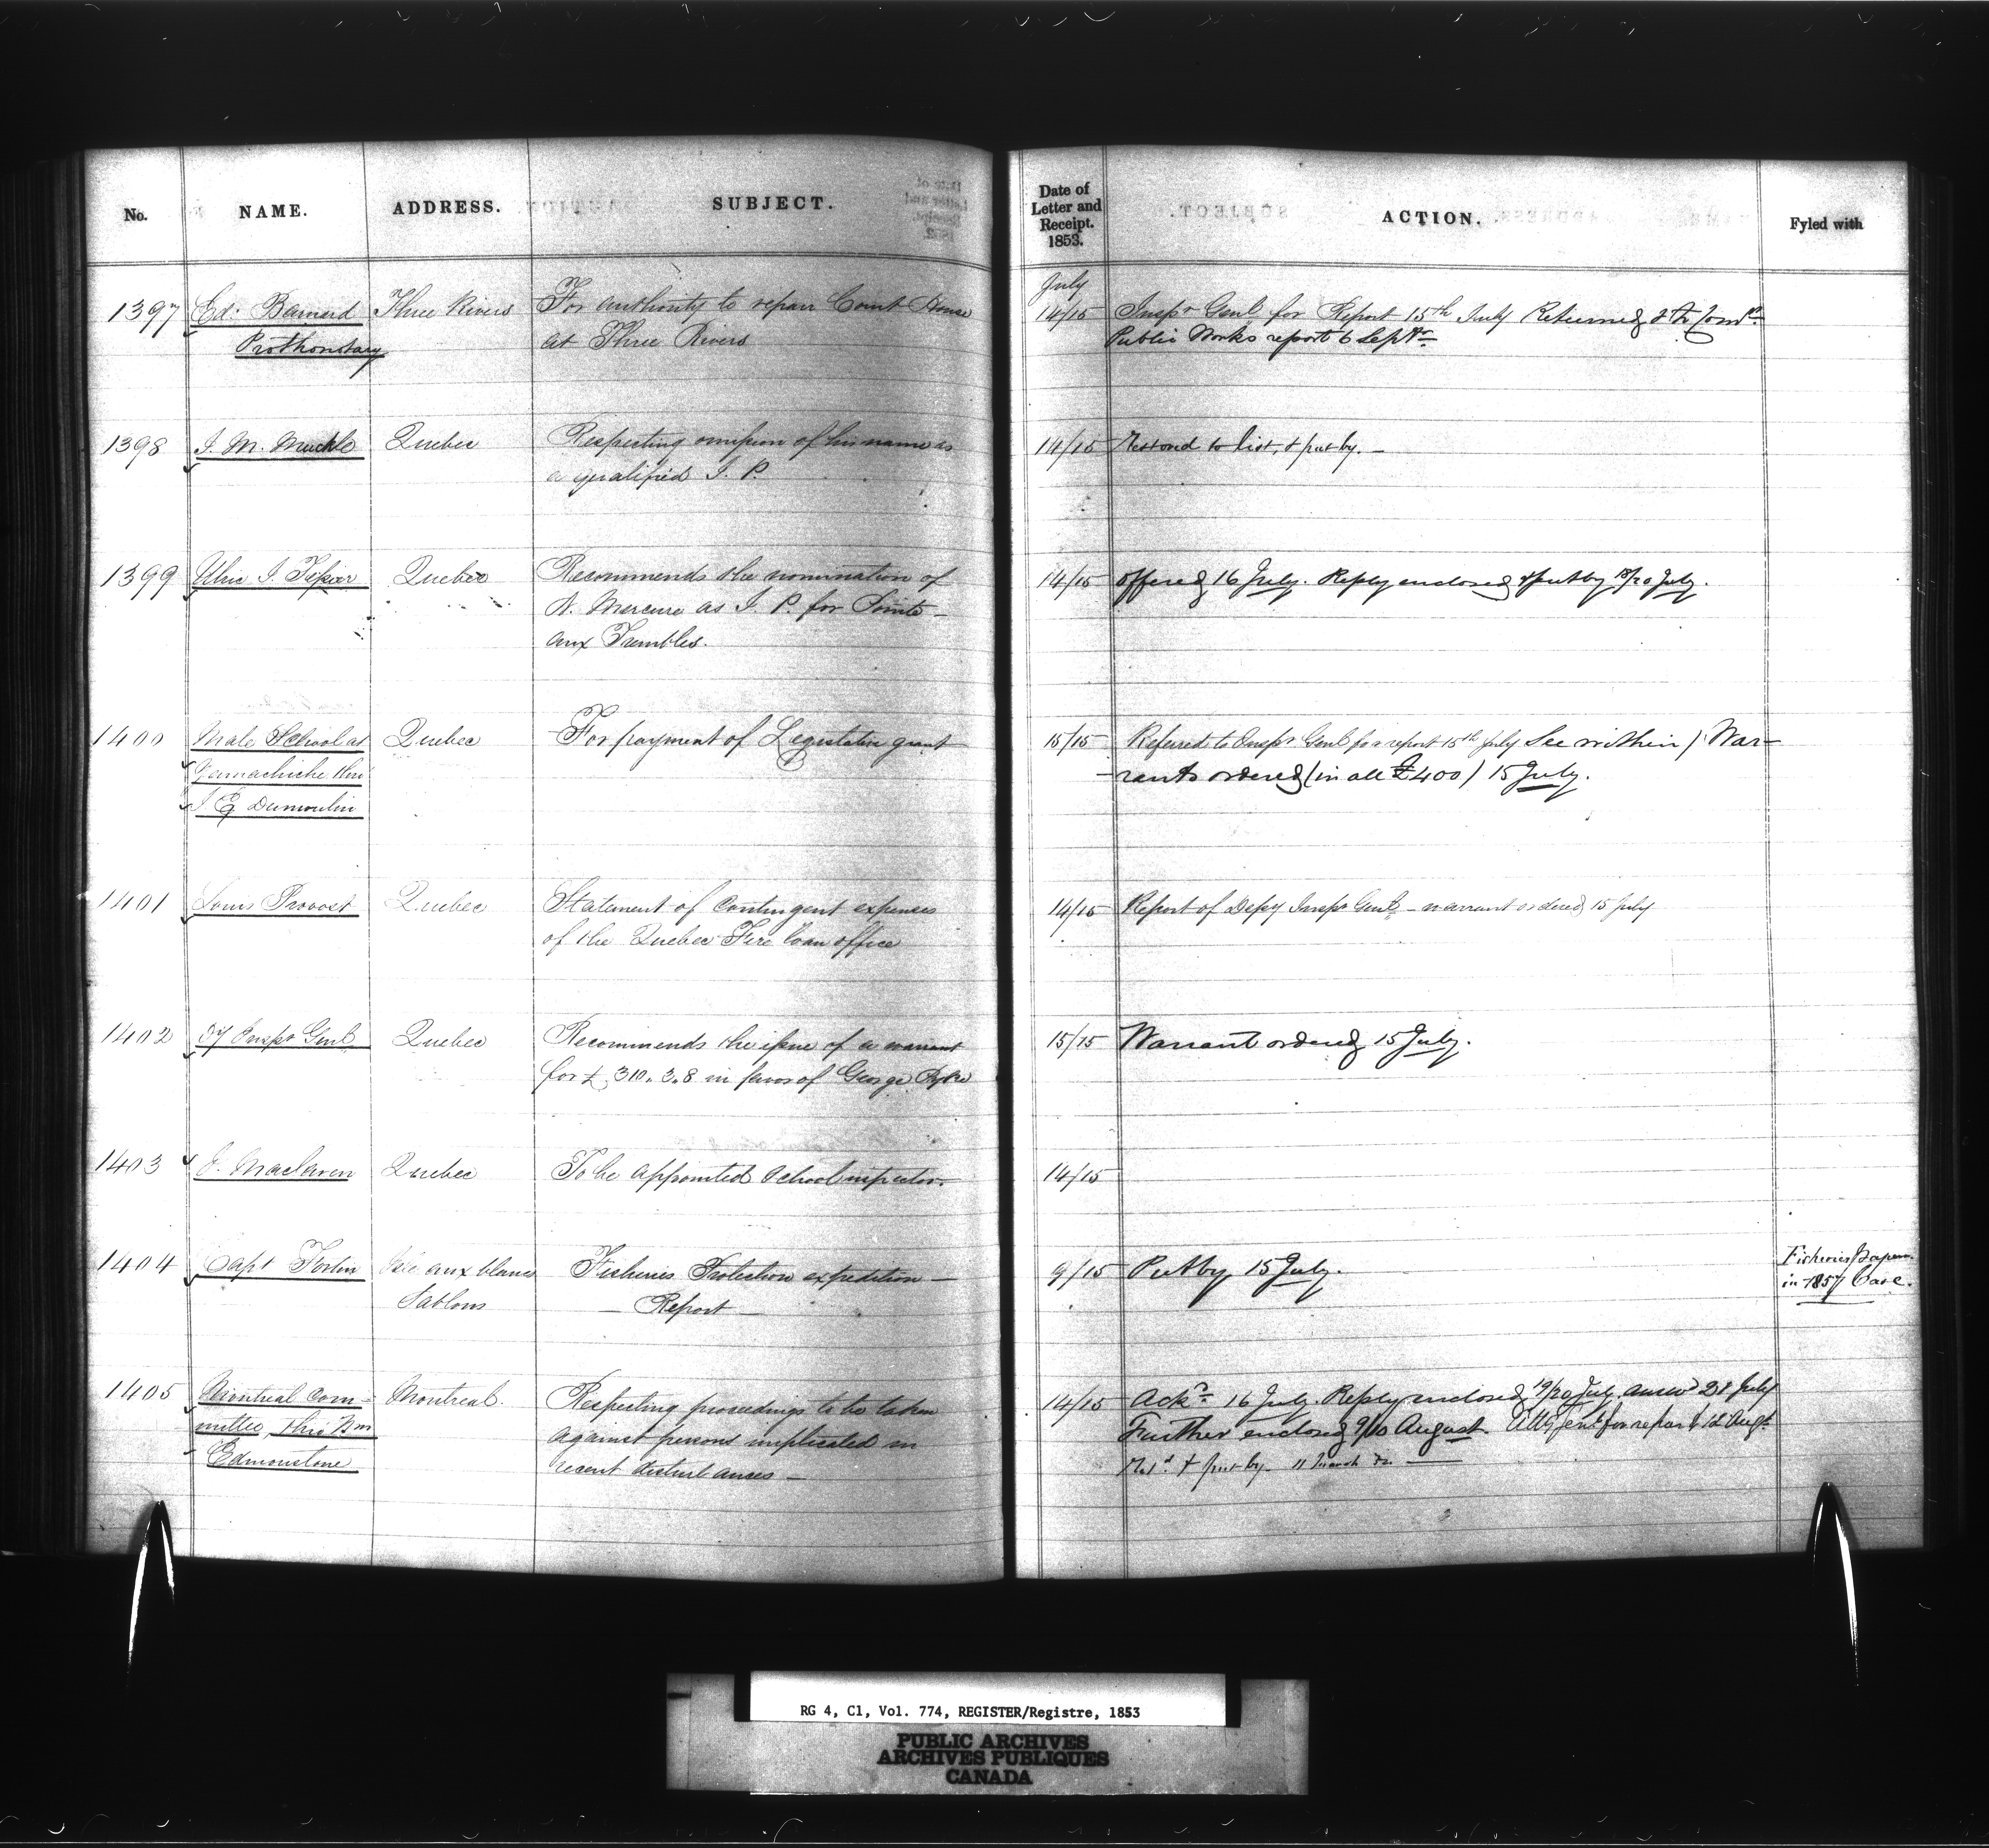 No. NAME. ADDRESS. SUBJECT. Date of Letter and Receipt. 1853. ACTION. Fyled with
July
1397 Ed. Barnard Three Rivers For authority to repair Court House 14/15 Inspr Genl for Report 15th July Returned
Prothonotary at Three Rivers Public Works report 6 Septr
1398 J. M. Muckle Quebec Respecting omission of his name as 14/15 Restored to list, & put by. —
a qualified J. P.
1399 Ulric J. Tessier Quebec Recommends the nomination of 14/15 offered 16 July. Reply enclosed & put by 18/20 July.
N. Mercure as J. P. for Pointe-
aux Trembles.
1400 Male School at Quebec For payment of Legislative grant 15/15 Referred to Inspr Genl for a report 15th July See within / War-
Yamachiche thro' rants ordered (in all £400) 15 July.
J E Dumoulin
1401 Louis Provost Quebec Statement of Contingent expenses 14/15 Report of Depy Inspr Genl – warrant ordered 15 July
of the Quebec Fire loan office
1402 Dy Inspr Genl Quebec Recommends the issue of a warrant 15/15 Warrant ordered 15 July.
for £310.3.8 in favor of George Pyke
1403 J. Maclaren Quebec To be appointed School inspector. 14/15
1404 Capt Fortin Isle aux blanc Fisheries Protection expedition — 9/15 Put by 15 July. Fisheries Papers
Sablons — Report — in 1857 Case.
1405 Montreal Com- Montreal. Respecting proceedings to be taken 14/15 Ackd 16 July. Reply enclosed 19/20 July. answd 21 July
mittee, thro' Wm against persons implicated in Further enclosed 9/10 August. Atty Genl for report 12 Augt.
Edmonstone recent disturbances — Retd & put by 11 March
RG 4, C1, Vol. 774, REGISTER/Registre, 1853
PUBLIC ARCHIVES
ARCHIVES PUBLIQUES
CANADA